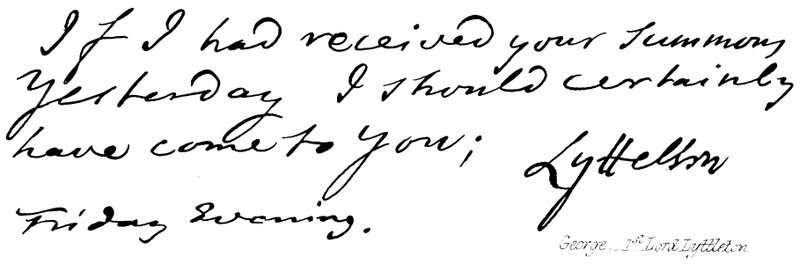 If I had received your Summons
Yesterday I should certainly
have come to You;
Lyttelton
Friday Evening.
George, 1st Lord Lyttleton